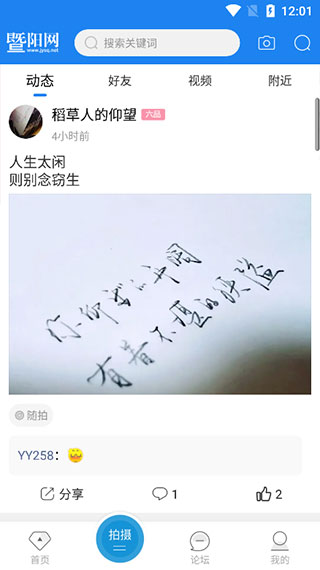 12:01
暨阳网
www.jysq.net
搜索关键词
动态 好友 视频 附近
稻草人的仰望 六品
4小时前
人生太闲
则别念窃生
有着不堪的
随拍
YY258：
分享 1 2
首页 拍摄 论坛 我的